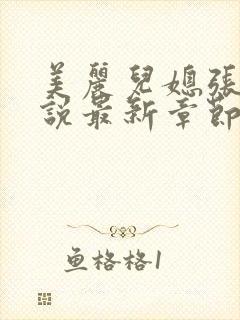 美麗兒媳張
說最新章節
魚格格1